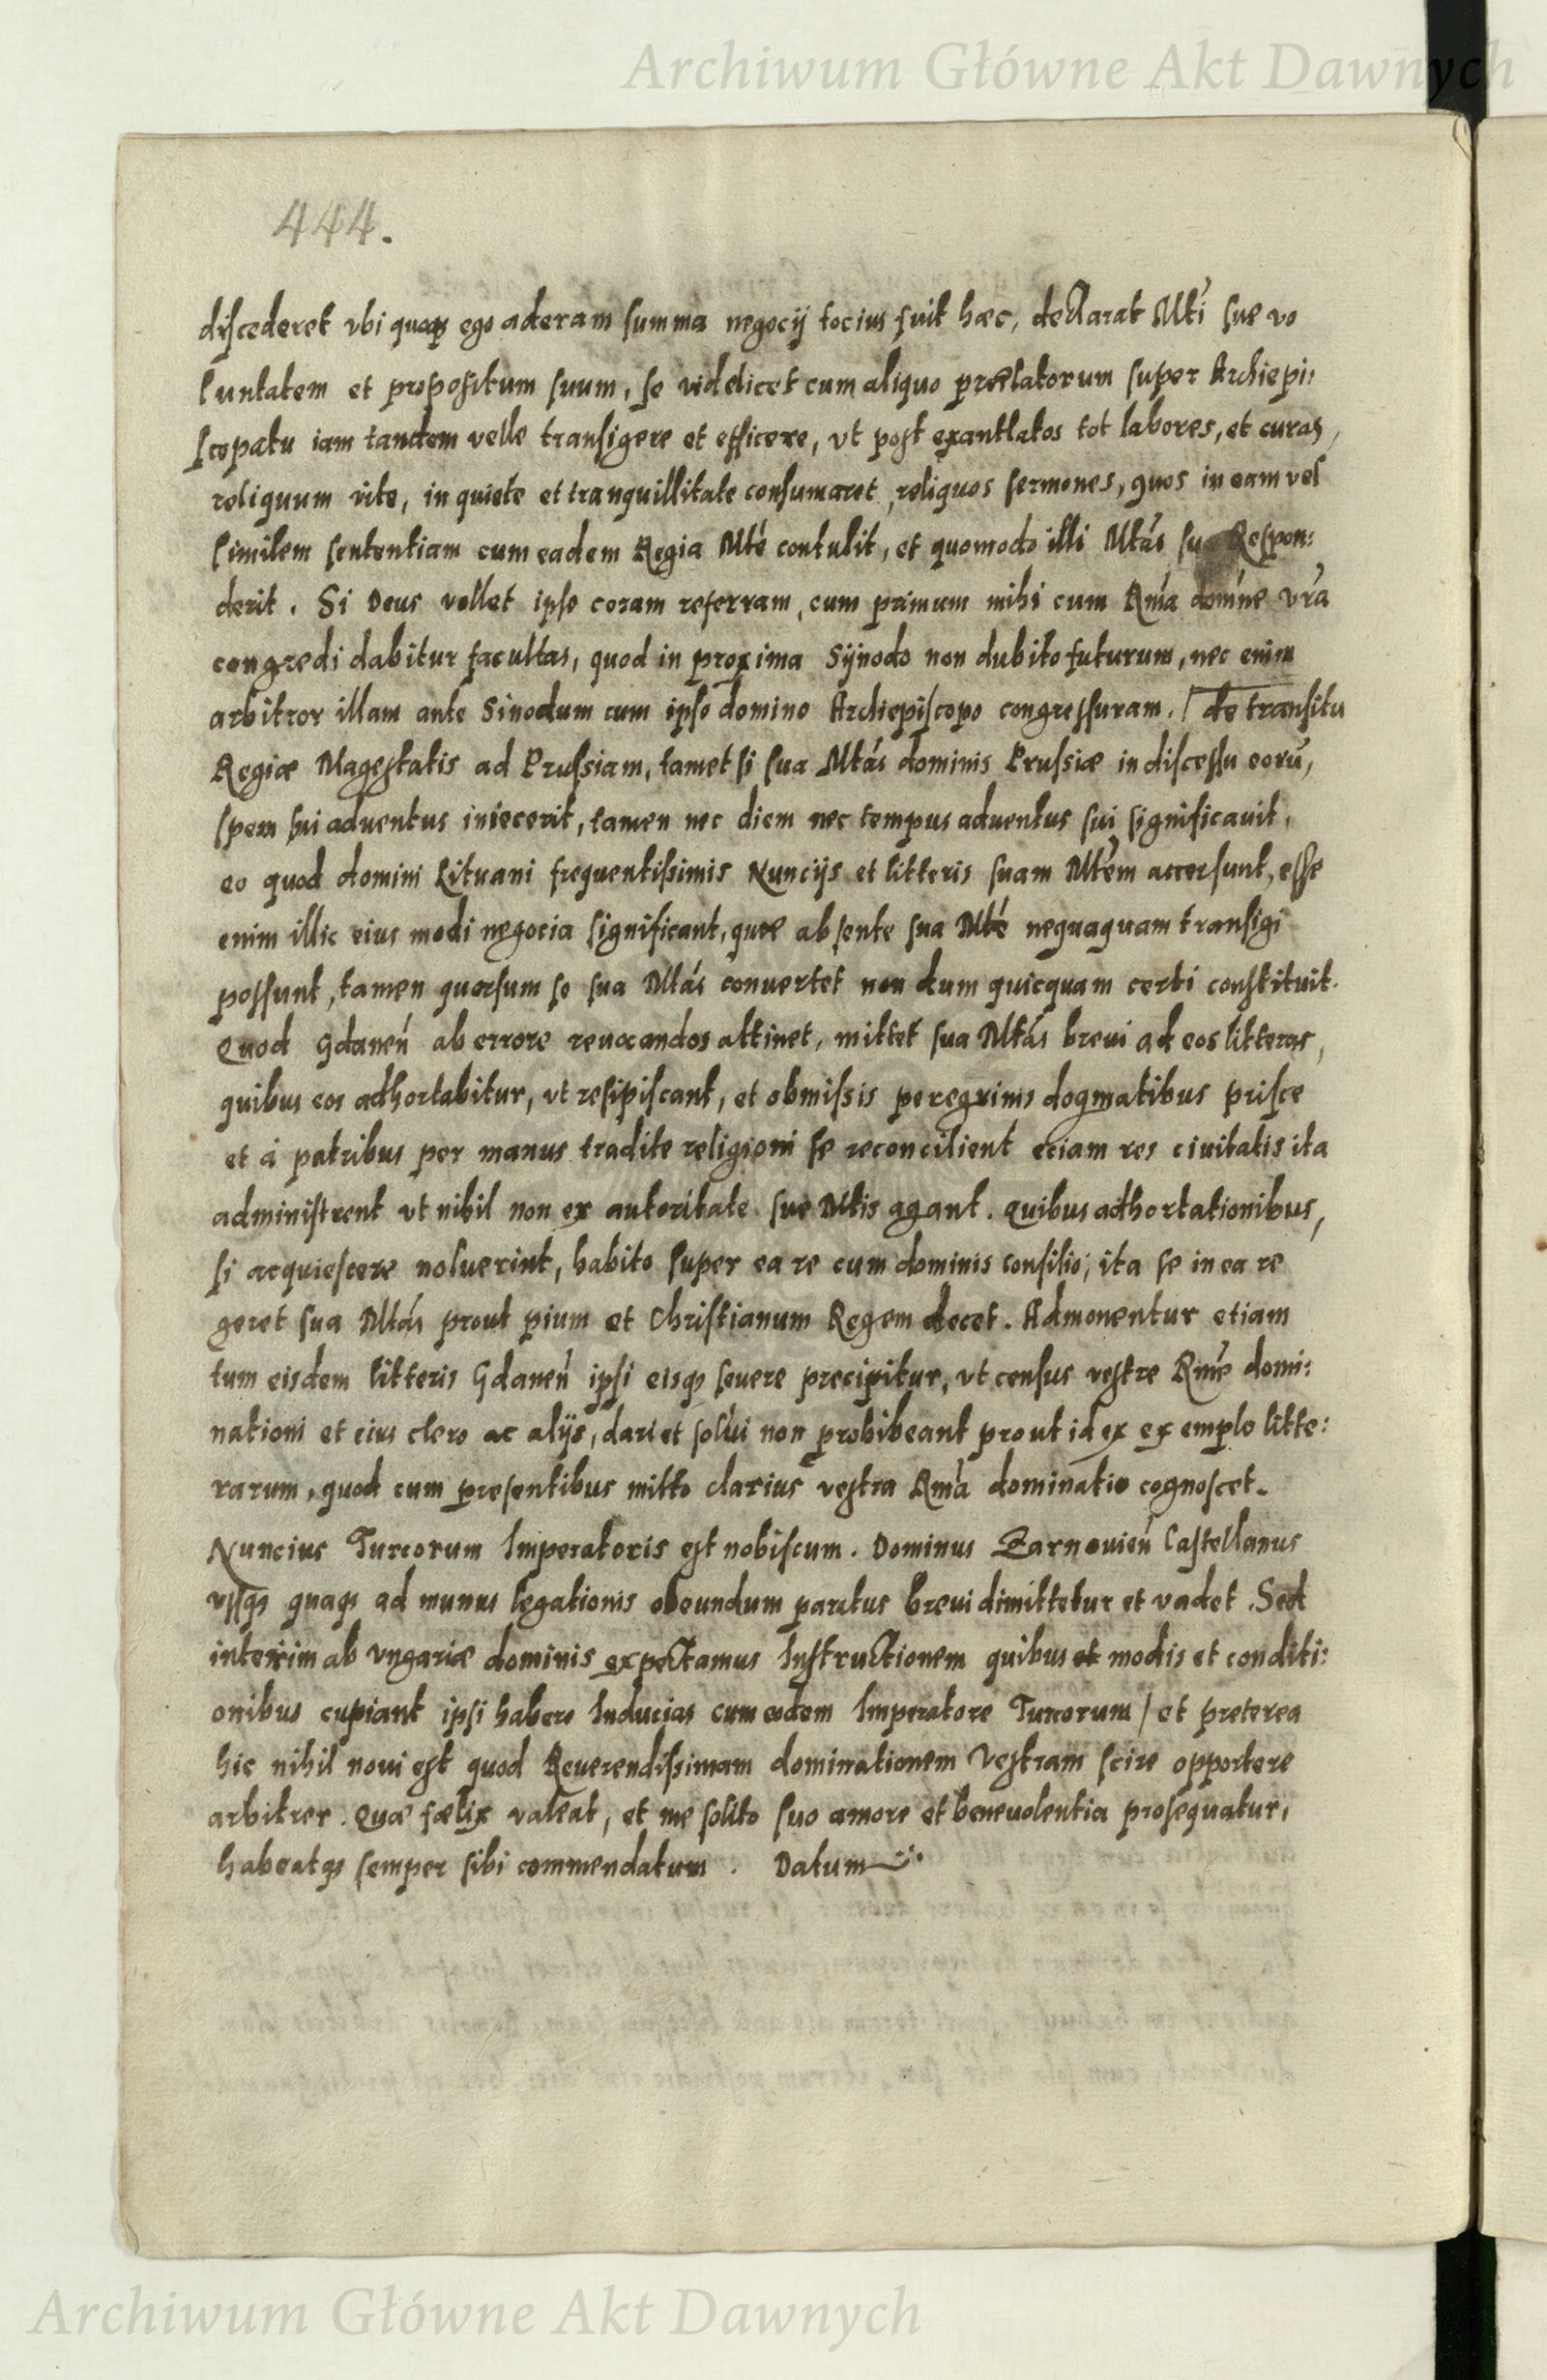 Archiwum Główne Akt Dawnych
444.
discederet vbi quoqȝ ego aderam summa negocij tocius fuit hæc, declarat Mti sue vo
luntatem et propositum suum, se videlicet cum aliquo prælatorum super Archiepi:
scopatu iam tandem velle transigere et efficere, vt post exantlatos tot labores, et curas,
reliquum vite, in quiete et tranquillitate consumaret, reliquos sermones, quos in eam vel
similem sententiam cum eadem Regia Mte contulit, et quomodo illi Mtas sua Respon:
derit. Si Deus vellet ipse coram referram, cum primum mihi cum Rma domne vra
congredi dabitur facultas, quod in proxima Sijnodo non dubito futurum, nec enim
arbitror illam ante Sinodum cum ipso domino Archiepiscopo congressuram. / de transitu
Regiæ Magestatis ad Prussiam, tamet si sua Mtas dominis Prussiæ in discessu eorũ,
spem sui aduentus iniecerit, tamen nec diem nec tempus aduentus sui significauit,
eo quod domini Lituani frequentissimis Nuncijs et litteris suam Mtem accersunt, esse
enim illic eius modi negocia significant, quæ absente sua Mte nequaquam transigi
possunt, tamen quorsum se sua Mtas conuertet non dum quicquam certi constituit.
Quod Gdanen ab errore reuocandos attinet, mittet sua Mtas breui ad eos litteras,
quibus eos adhortabitur, vt resipiscant, et obmissis peregrinis dogmatibus prisce
et á patribus per manus tradite religioni se reconcilient etiam res ciuitatis ita
administrent vt nihil non ex autoritate sue Mtis agant. Quibus adhortationibus,
si acquiescere noluerint, habito super ea re cum dominis consilio, ita se in ea re
geret sua Mtas prout pium et Christianum Regem decet. Admonentur etiam
tum eisdem litteris Gdanen ipsi eisqȝ seuere precipitur, vt census vestre Rme domi:
nationi et eius clero ac alijs, dari et solui non prohibeant prout id ex exemplo litte:
rarum, quod cum presentibus mitto clarius vestra Rma dominatio cognoscet.
Nuncius Turcorum Imperatoris est nobiscum. Dominus Zarnouien Castellanus
vsqȝ quaqȝ ad munus legationis obeundum paratus breui dimittetur et vadet. Sed
interim ab vngariæ dominis expectamus Instructionem quibus et modis et conditi:
onibus cupiant ipsi habere Inducias cum eodem Imperatore Turcorum / et preterea
hic nihil noui est quod Reuerendissimam dominationem Vestram scire opportere
arbitrer. Quæ fælix valeat, et me solito suo amore et beneuolentia prosequatur,
habeatqȝ semper sibi commendatum. Datum
Archiwum Główne Akt Dawnych